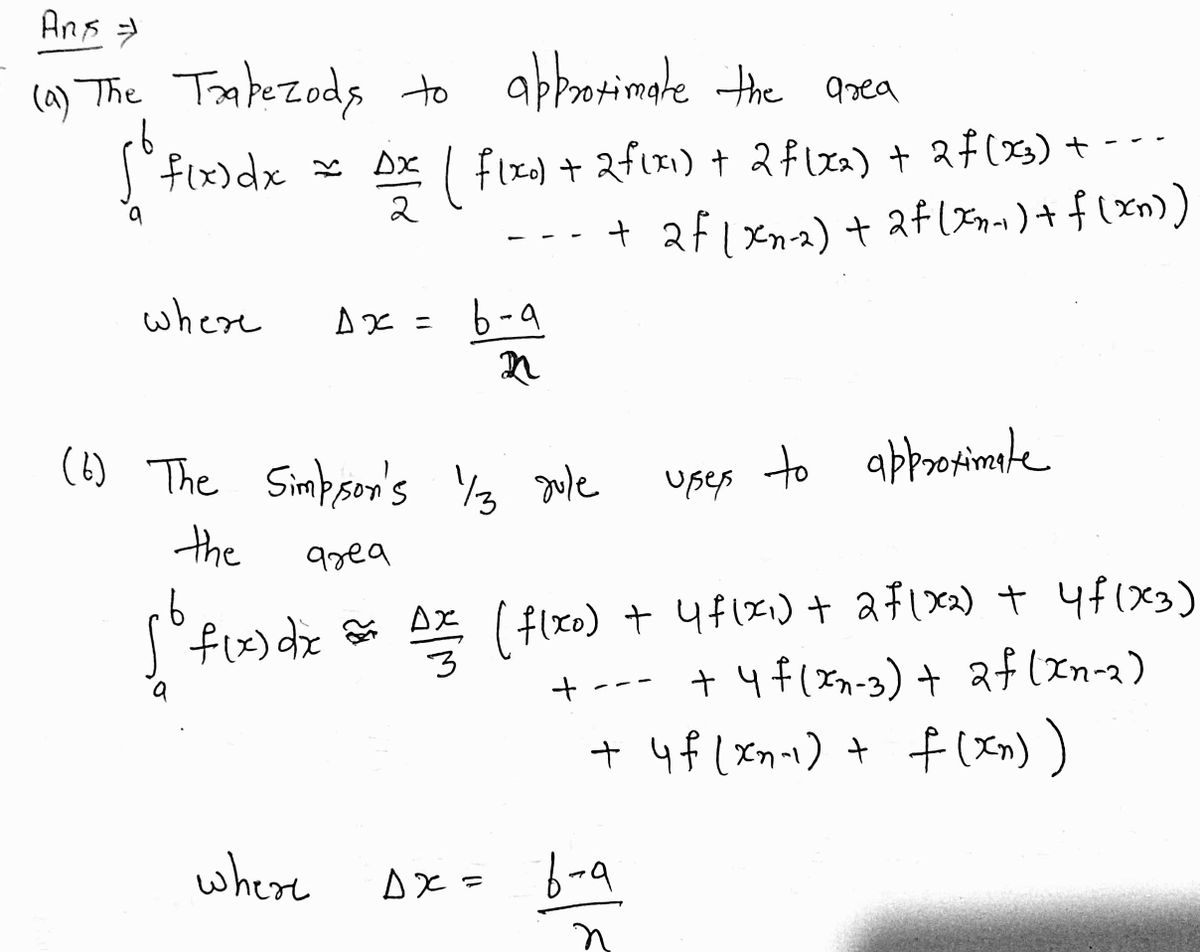 Ans ⇒
(a) The Trapezods to approximate the area
∫ₐᵇ f(x)dx ≈ Δx/2 ( f(x₀) + 2f(x₁) + 2f(x₂) + 2f(x₃) + ---
--- + 2f(xₙ₋₂) + 2f(xₙ₋₁) + f(xₙ))
where Δx = b-a/n
(b) The Simpson's 1/3 rule uses to approximate
the area
∫ₐᵇ f(x)dx ≈ Δx/3 ( f(x₀) + 4f(x₁) + 2f(x₂) + 4f(x₃)
+ --- + 4f(xₙ₋₃) + 2f(xₙ₋₂)
+ 4f(xₙ₋₁) + f(xₙ) )
where Δx = b-a/n